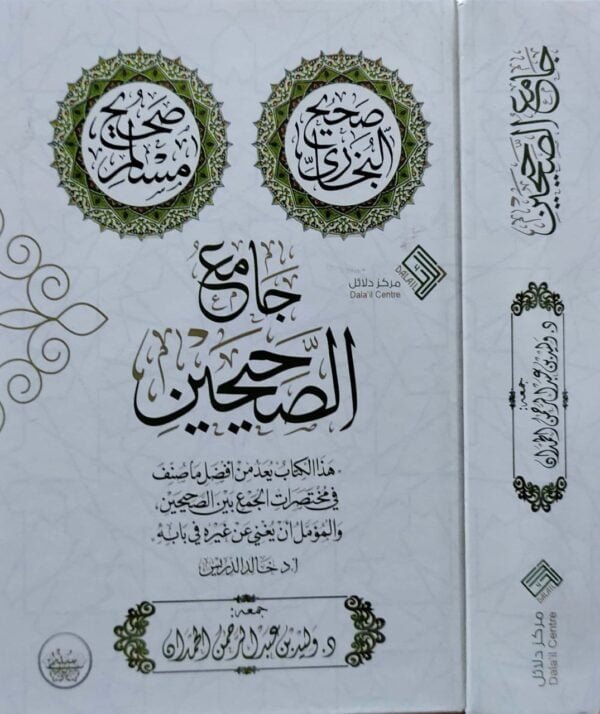 صحيح
البخاري
صحيح
مسلم
جامع
الصَّحيحين
مركز دلائل
Dala'il Centre
DALAIL
"هذا الكتاب يعد من أفضل ما صنف
في مختصرات الجمع بين الصحيحين،
والمؤمل أن يغني عن غيره في بابه"
أ.د خالد الدريس
جمعه:
د. وليد بن عبد الرحمن الحمدان
جامع الصَّحيحين
جمعه:
د. وليد بن عبد الرحمن الحمدان
DALAIL
مركز دلائل
Dala'il Centre